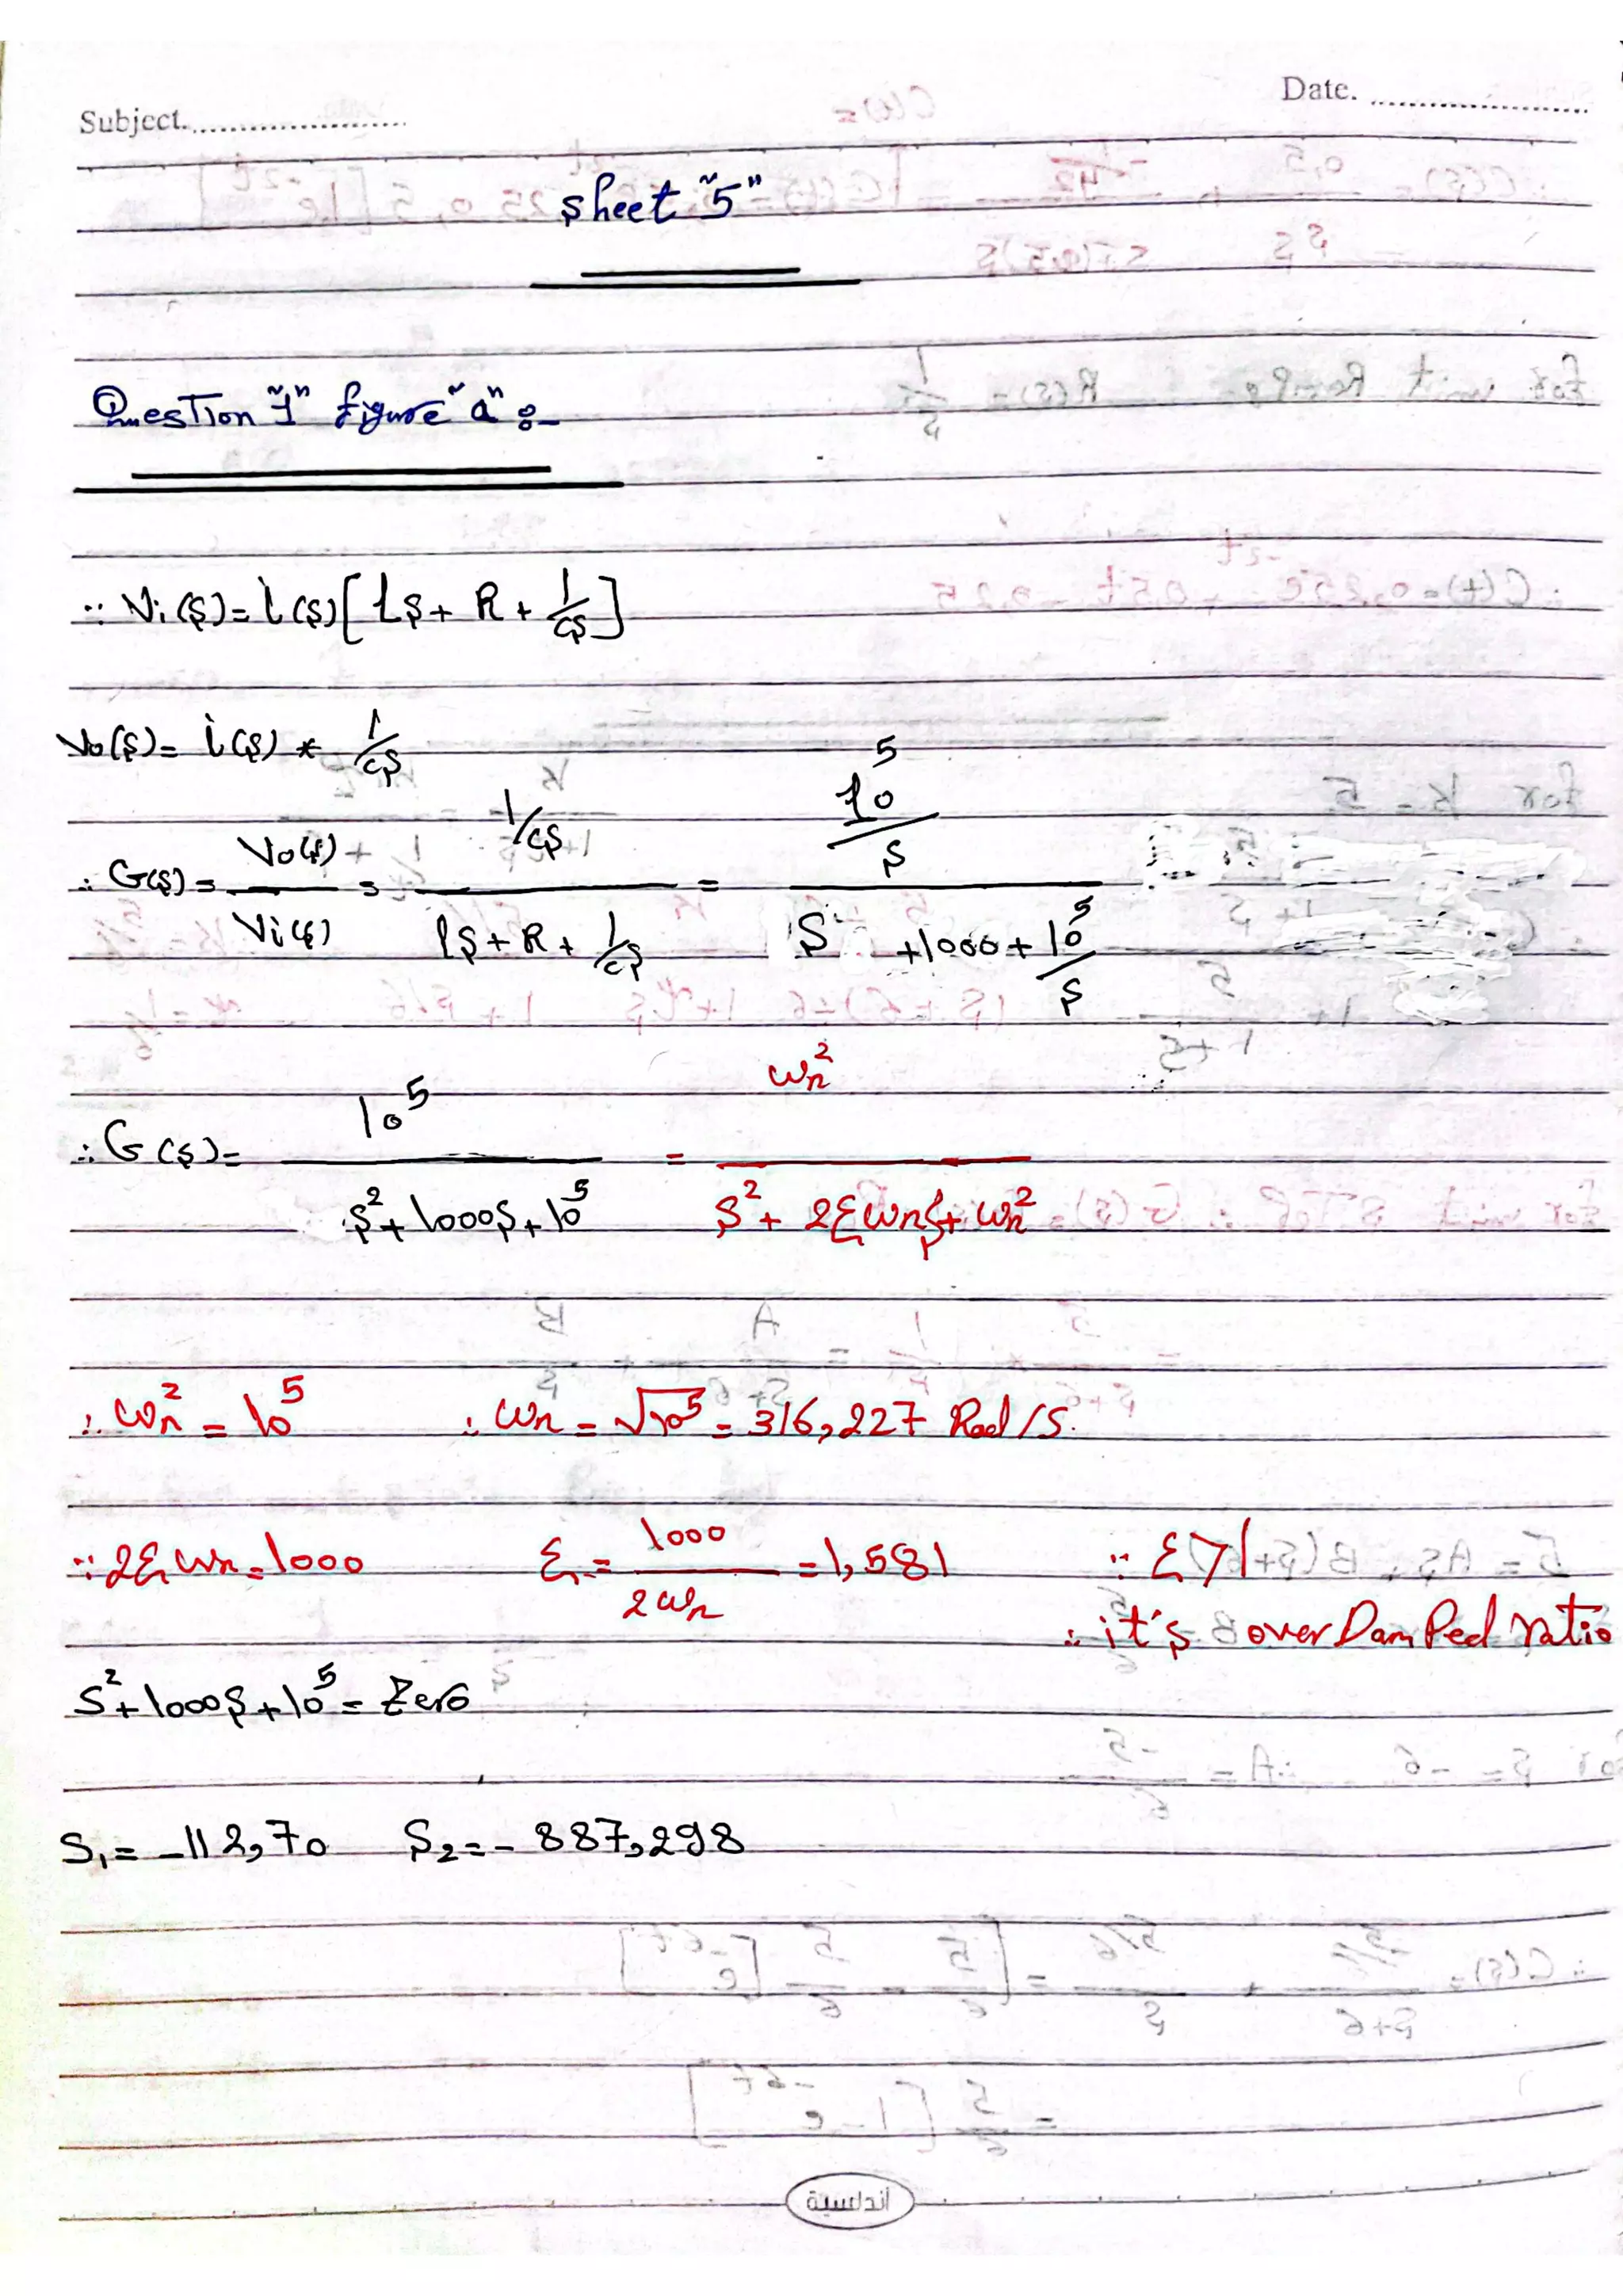 Subject.
Date.
Sheet "5"
Question "1" figure "a" :-
∵ Vi(s) = i(s) [ Ls + R + 1/cs ]
Vo(s) = i(s) * 1/cs
∴ G(s) = Vo(s) / Vi(s) = (1/cs) / (Ls + R + 1/cs) = (10^5 / s) / (S + 1000 + 10^5/s)
∴ G(s) = 10^5 / (s² + 1000s + 10^5) = ωn² / (s² + 2ξωns + ωn²)
∴ ωn² = 10^5 ∴ ωn = √10^5 = 316,227 Rad/s.
∵ 2ξωn = 1000 ξ = 1000 / 2ωn = 1,581 ∵ ξ > 1
∴ it's over Damped ratio
S² + 1000s + 10^5 = Zero
S1 = -112,70 S2 = - 887,298
أندلسية